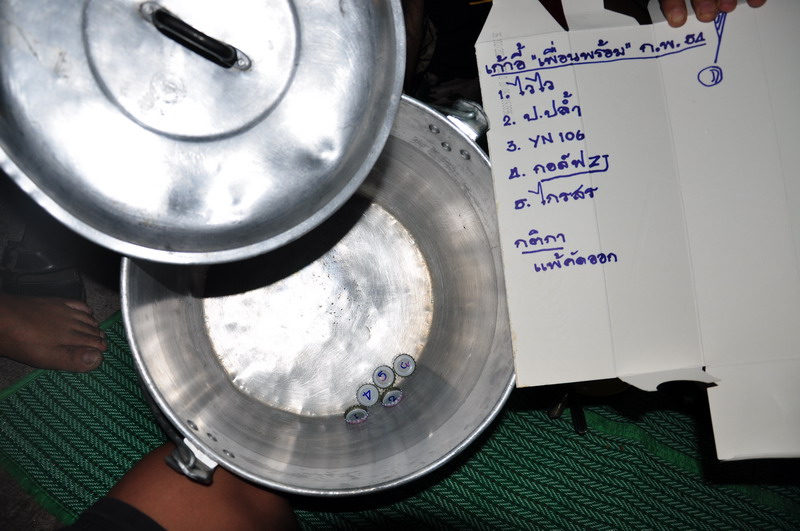 เก้าอี้ "เพื่อนพร้อม" ก.พ. 54
1. ไวไว
2. ป.ปล้ำ
3. YN 106
4. กอล์ฟ ZJ
5. ไกรสร
กติกา
แพ้คัดออก
4
5